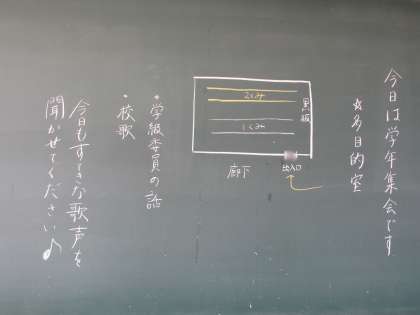 今日は学年集会です
☆多目的室
黒板
2くみ
1くみ
出入口
廊下
・学級委員の話
・校歌
今日もすてきな歌声を
聞かせてください♪